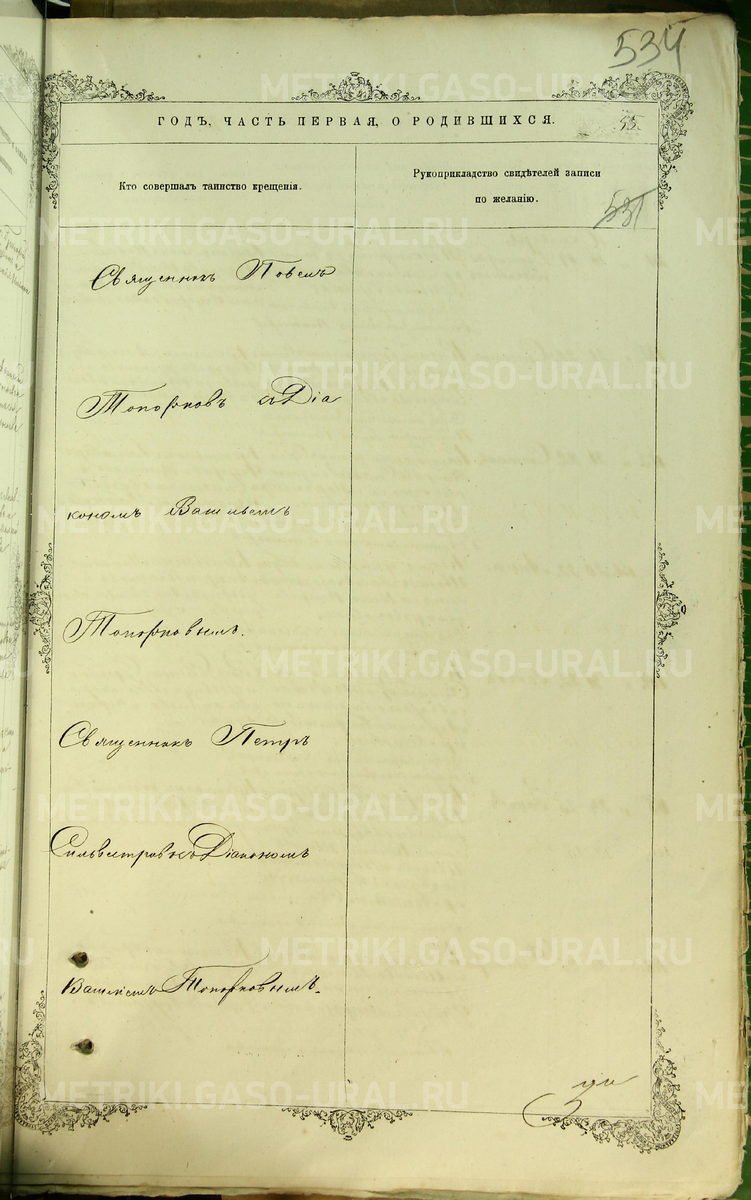 534
ГОДЪ, ЧАСТЬ ПЕРВАЯ, О РОДИВШИХСЯ.
53.
Кто совершалъ таинство крещенія.
Рукоприкладство свидѣтелей записи
по желанію.
Священникъ Павелъ
Топорковъ съ Діа
кономъ Васильемъ
Топорковымъ.
Священникъ Петръ
Сильвестровъ съ Діакономъ
Васильемъ Топорковымъ.
METRIKI.GASO-URAL.RU